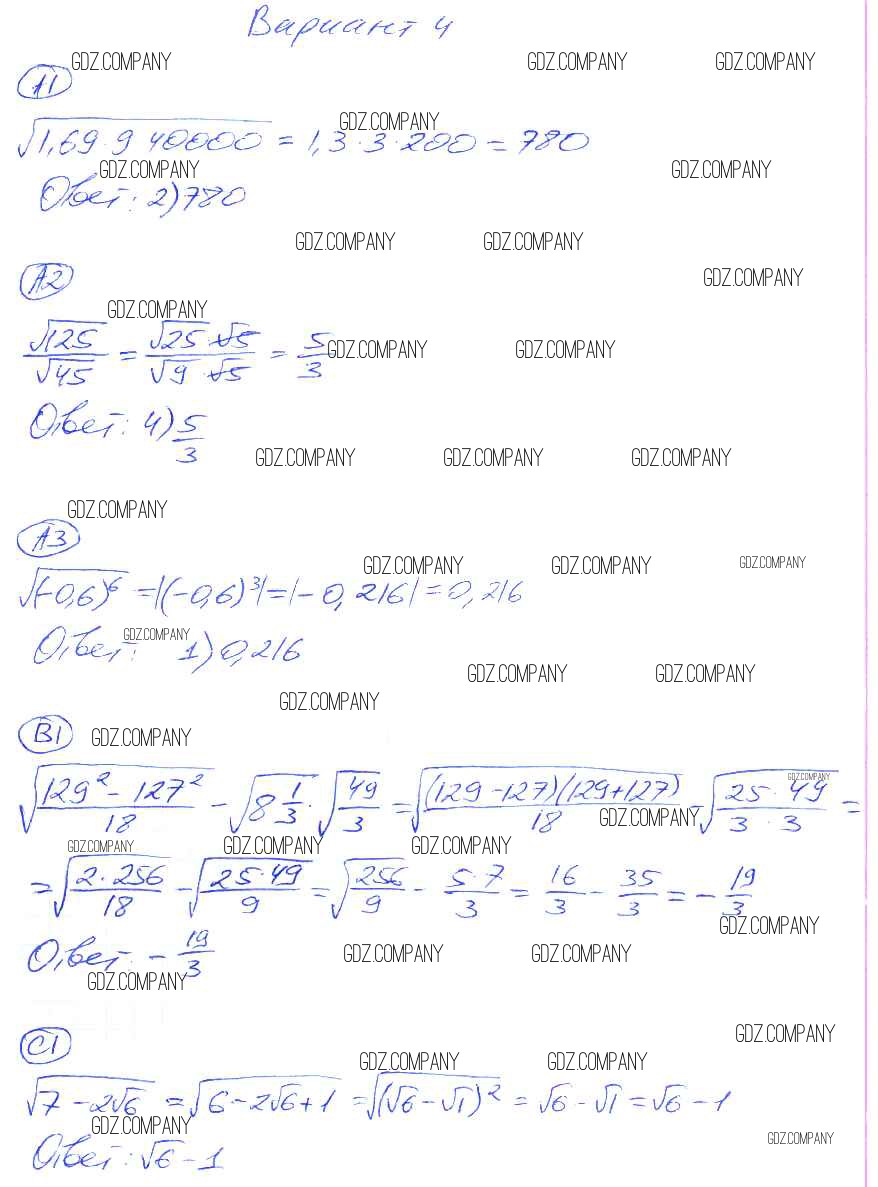 Вариант 4
GDZ.COMPANY GDZ.COMPANY GDZ.COMPANY
А1
GDZ.COMPANY
√(1,69·9 40000) = 1,3·3·200 = 780
GDZ.COMPANY GDZ.COMPANY
Ответ: 2) 780
GDZ.COMPANY GDZ.COMPANY
А2 GDZ.COMPANY
GDZ.COMPANY
√125/√45 = (√25·√5)/(√9·√5) = 5/3 GDZ.COMPANY GDZ.COMPANY
Ответ: 4) 5/3
GDZ.COMPANY GDZ.COMPANY GDZ.COMPANY
GDZ.COMPANY
А3
GDZ.COMPANY GDZ.COMPANY GDZ.COMPANY
√(-0,6)^6 = |(-0,6)^3| = |-0,216| = 0,216
GDZ.COMPANY
Ответ: 1) 0,216
GDZ.COMPANY GDZ.COMPANY
GDZ.COMPANY
В1 GDZ.COMPANY
√((129²-127²)/18) - √(8 1/3)·√(49/3) = √((129-127)(129+127)/18) - √((25·49)/(3·3)) =
GDZ.COMPANY
GDZ.COMPANY
GDZ.COMPANY GDZ.COMPANY GDZ.COMPANY
= √((2·256)/18) - √((25·49)/9) = √(256/9) - (5·7)/3 = 16/3 - 35/3 = -19/3
GDZ.COMPANY
Ответ: -19/3 GDZ.COMPANY GDZ.COMPANY
GDZ.COMPANY
С1 GDZ.COMPANY
GDZ.COMPANY GDZ.COMPANY
√(7-2√6) = √(6-2√6+1) = √((√6-√1)²) = √6-√1 = √6-1
GDZ.COMPANY GDZ.COMPANY
Ответ: √6-1